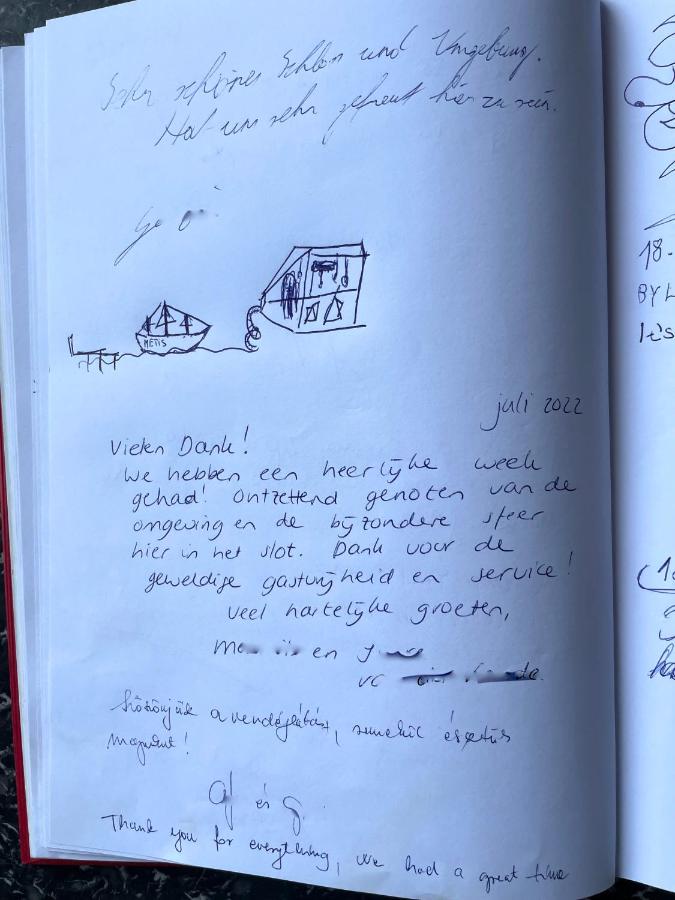 Sehr schönes Schloss und Umgebung.
Hat uns sehr gefreut hier zu sein.
METIS
juli 2022
Vielen Dank!
We hebben een heerlijke week
gehad! Ontzettend genoten van de
omgeving en de bijzondere sfeer
hier in het slot. Dank voor de
geweldige gastvrijheid en service!
Veel hartelijke groeten,
en
Köszönjük a vendéglátást,
magunkat!
és
Thank you for everything, we had a great time
18.
BY L
It's